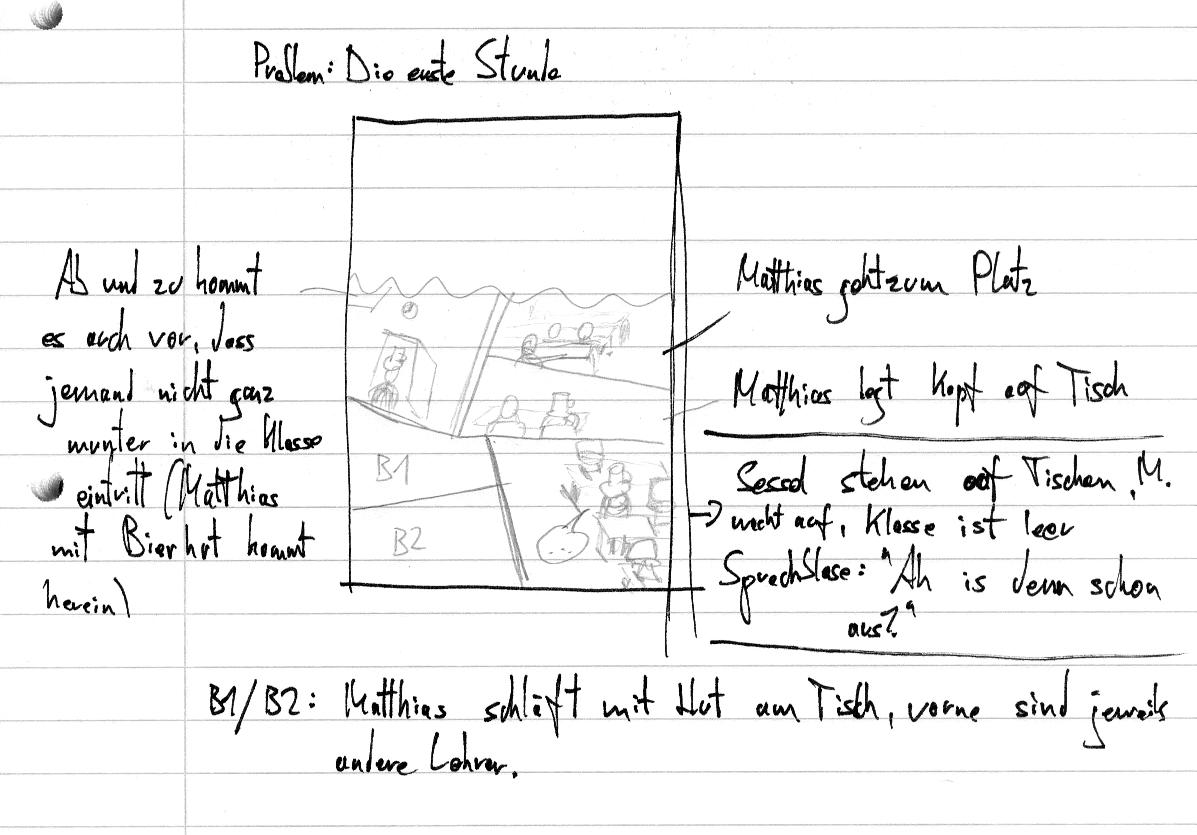 Problem: Die erste Stunde
Ab und zu kommt
es auch vor, dass
jemand nicht ganz
munter in die Klasse
eintritt (Matthias
mit Bierhut kommt
herein)
Matthias geht zum Platz
Matthias legt Kopf auf Tisch
Sessel stehen auf Tischen, M.
wacht auf, Klasse ist leer
Sprechblase: "Ah is denn schon
aus?"
B1
B2
...
B1/B2: Matthias schläft mit Hut am Tisch, vorne sind jeweils
andere Lehrer.